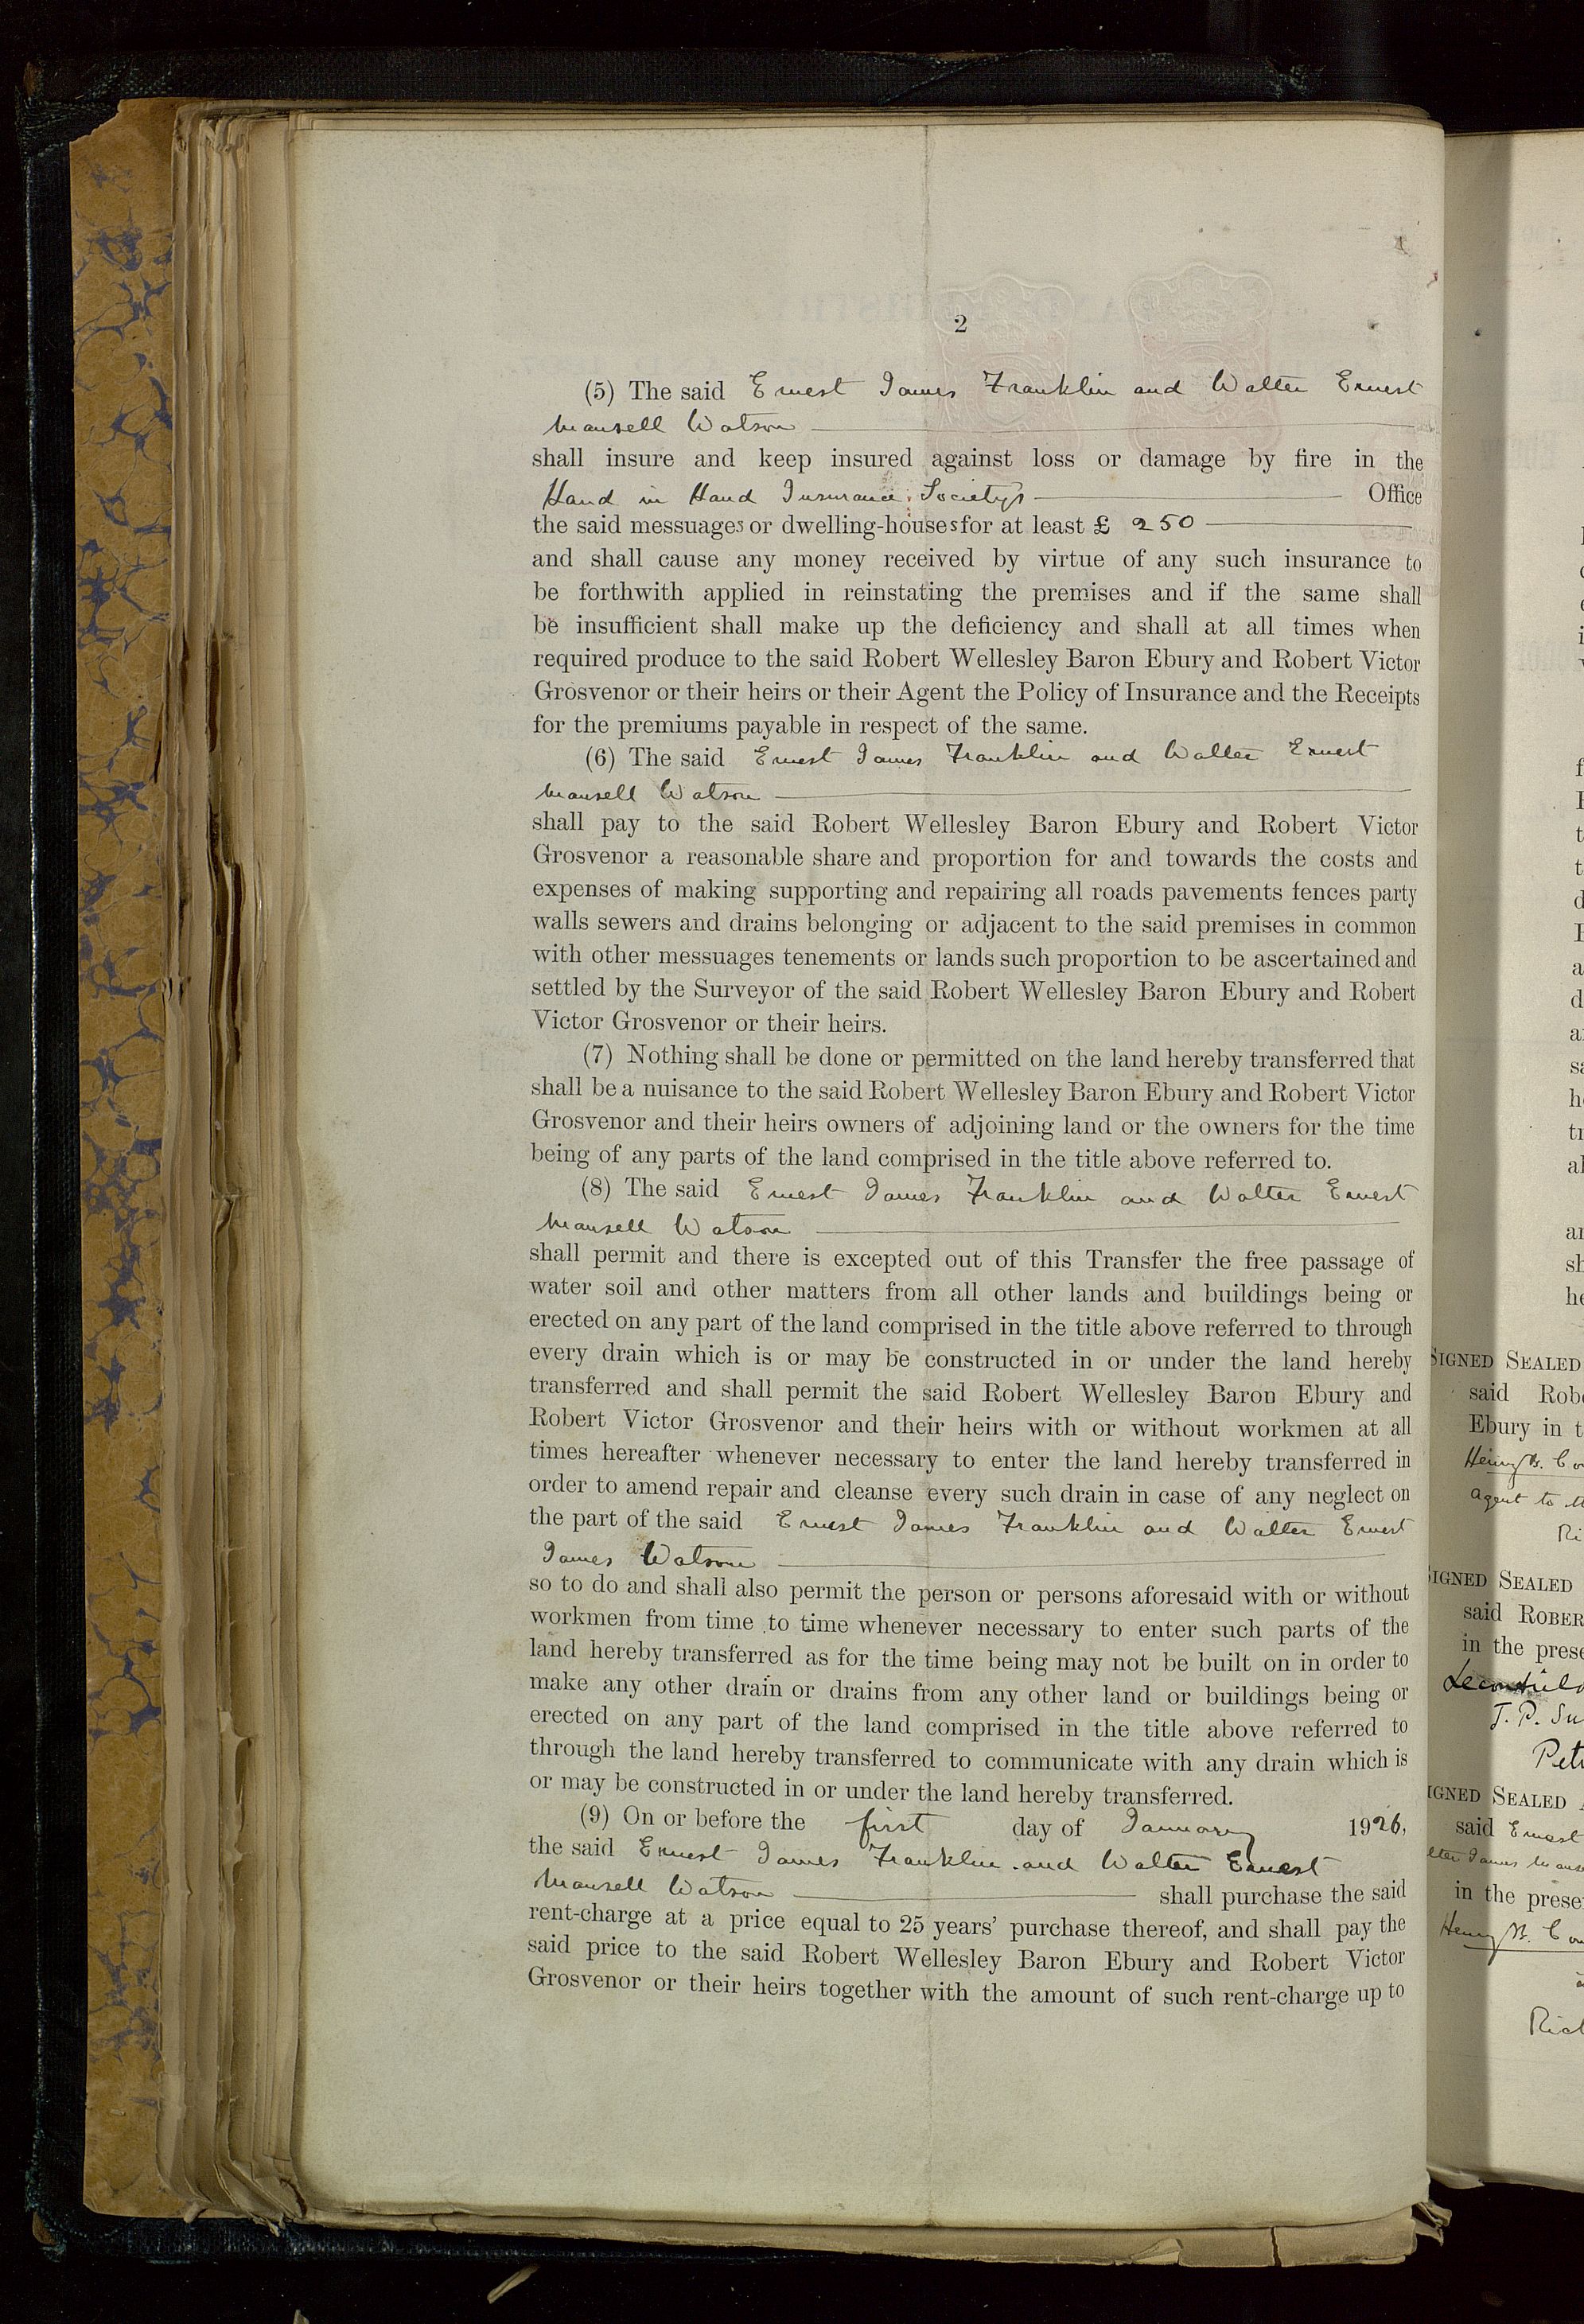 2
(5) The said Ernest James Franklin and Walter Ernest
Mansell Watson
shall insure and keep insured against loss or damage by fire in the
Hand in Hand Insurance Society's Office
the said messuages or dwelling-houses for at least £ 250
and shall cause any money received by virtue of any such insurance to
be forthwith applied in reinstating the premises and if the same shall
be insufficient shall make up the deficiency and shall at all times when
required produce to the said Robert Wellesley Baron Ebury and Robert Victor
Grosvenor or their heirs or their Agent the Policy of Insurance and the Receipts
for the premiums payable in respect of the same.
(6) The said Ernest James Franklin and Walter Ernest
Mansell Watson
shall pay to the said Robert Wellesley Baron Ebury and Robert Victor
Grosvenor a reasonable share and proportion for and towards the costs and
expenses of making supporting and repairing all roads pavements fences party
walls sewers and drains belonging or adjacent to the said premises in common
with other messuages tenements or lands such proportion to be ascertained and
settled by the Surveyor of the said Robert Wellesley Baron Ebury and Robert
Victor Grosvenor or their heirs.
(7) Nothing shall be done or permitted on the land hereby transferred that
shall be a nuisance to the said Robert Wellesley Baron Ebury and Robert Victor
Grosvenor and their heirs owners of adjoining land or the owners for the time
being of any parts of the land comprised in the title above referred to.
(8) The said Ernest James Franklin and Walter Ernest
Mansell Watson
shall permit and there is excepted out of this Transfer the free passage of
water soil and other matters from all other lands and buildings being or
erected on any part of the land comprised in the title above referred to through
every drain which is or may be constructed in or under the land hereby
transferred and shall permit the said Robert Wellesley Baron Ebury and
Robert Victor Grosvenor and their heirs with or without workmen at all
times hereafter whenever necessary to enter the land hereby transferred in
order to amend repair and cleanse every such drain in case of any neglect on
the part of the said Ernest James Franklin and Walter Ernest
James Watson
so to do and shall also permit the person or persons aforesaid with or without
workmen from time to time whenever necessary to enter such parts of the
land hereby transferred as for the time being may not be built on in order to
make any other drain or drains from any other land or buildings being or
erected on any part of the land comprised in the title above referred to
through the land hereby transferred to communicate with any drain which is
or may be constructed in or under the land hereby transferred.
(9) On or before the first day of January 1926,
the said Ernest James Franklin and Walter Ernest
Mansell Watson shall purchase the said
rent-charge at a price equal to 25 years' purchase thereof, and shall pay the
said price to the said Robert Wellesley Baron Ebury and Robert Victor
Grosvenor or their heirs together with the amount of such rent-charge up to
SIGNED SEALED
said
Ebury in
Henry B.
agent to
SIGNED SEALED
said
in the
SIGNED SEALED
said Ernest
James
in the
Henry B.